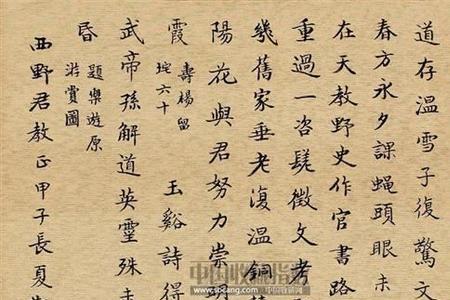 道存温雪子復驚文
春方永夕課蠅頭眼未
在天教野史作官書路
重過一咨髭徵文考
幾舊家垂老復温銅
陽花與君努力崇
霞
壽楊留
垞六十
玉谿詩得
武帝孫解道英靈殊未
昏
題樂遊原
游賞圖
西野君教正甲子長夏
中国收藏
www.sbcang.com